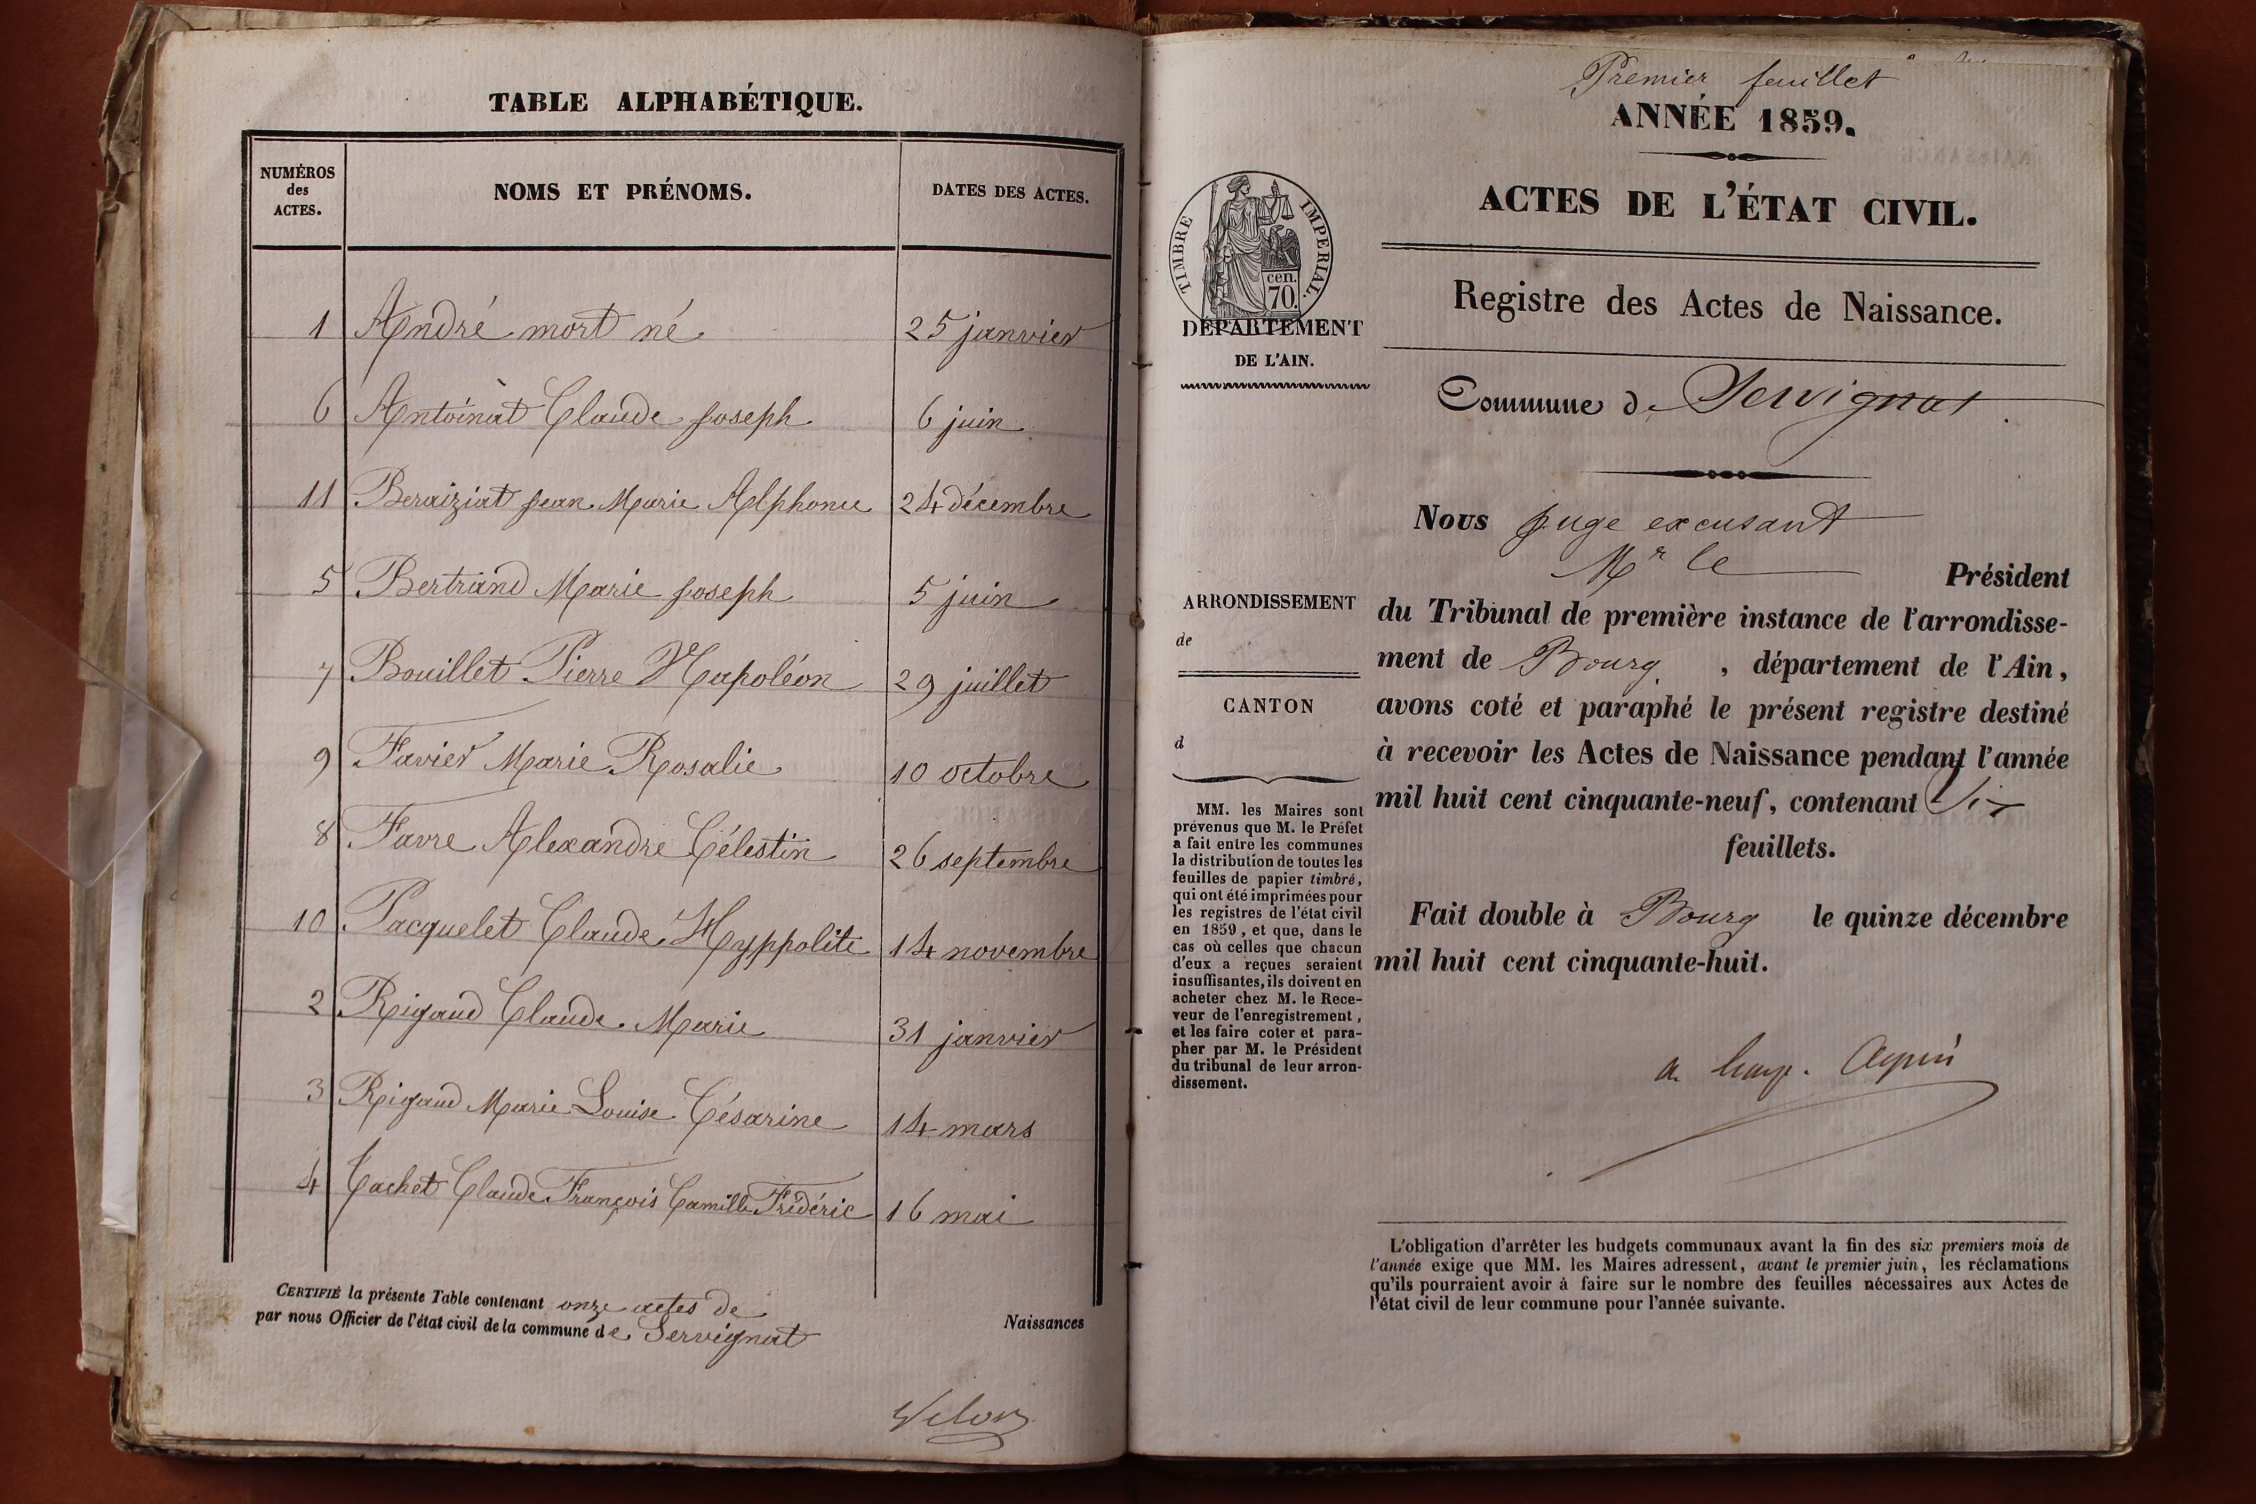 TABLE ALPHABÉTIQUE.
NUMÉROS
des
ACTES.
NOMS ET PRÉNOMS.
DATES DES ACTES.
1 André mort né 25 janvier
6 Antoinat Claude Joseph 6 juin
11 Beraiziat Jean Marie Alphonse 24 décembre
5 Bertrand Marie Joseph 5 juin
7 Bouillet Pierre Napoléon 29 juillet
9 Favier Marie Rosalie 10 octobre
8 Favre Alexandre Célestin 26 septembre
10 Pacquelet Claude Hyppolite 14 novembre
2 Rigaud Claude Marie 31 janvier
3 Rigaud Marie Louise Césarine 14 mars
4 Tachet Claude François Camille Frédéric 16 mai
CERTIFIÉ la présente Table contenant onze actes de Naissances
par nous Officier de l'état civil de la commune de Servignat
Premier feuillet
ANNÉE 1859.
ACTES DE L'ÉTAT CIVIL.
TIMBRE IMPERIAL.
cen.
70.
DÉPARTEMENT
DE L'AIN.
Registre des Actes de Naissance.
Commune de Servignat
Nous Juge excusant
Mr le Président
du Tribunal de première instance de l'arrondisse-
ment de Bourg, département de l'Ain,
avons coté et paraphé le présent registre destiné
à recevoir les Actes de Naissance pendant l'année
mil huit cent cinquante-neuf, contenant Six
feuillets.
Fait double à Bourg le quinze décembre
mil huit cent cinquante-huit.
ARRONDISSEMENT
de
CANTON
d
MM. les Maires sont
prévenus que M. le Préfet
a fait entre les communes
la distribution de toutes les
feuilles de papier timbré,
qui ont été imprimées pour
les registres de l'état civil
en 1859, et que, dans le
cas où celles que chacun
d'eux a reçues seraient
insuffisantes, ils doivent en
acheter chez M. le Rece-
veur de l'enregistrement,
et les faire coter et para-
pher par M. le Président
du tribunal de leur arron-
dissement.
L'obligation d'arrêter les budgets communaux avant la fin des six premiers mois de
l'année exige que MM. les Maires adressent, avant le premier juin, les réclamations
qu'ils pourraient avoir à faire sur le nombre des feuilles nécessaires aux Actes de
l'état civil de leur commune pour l'année suivante.